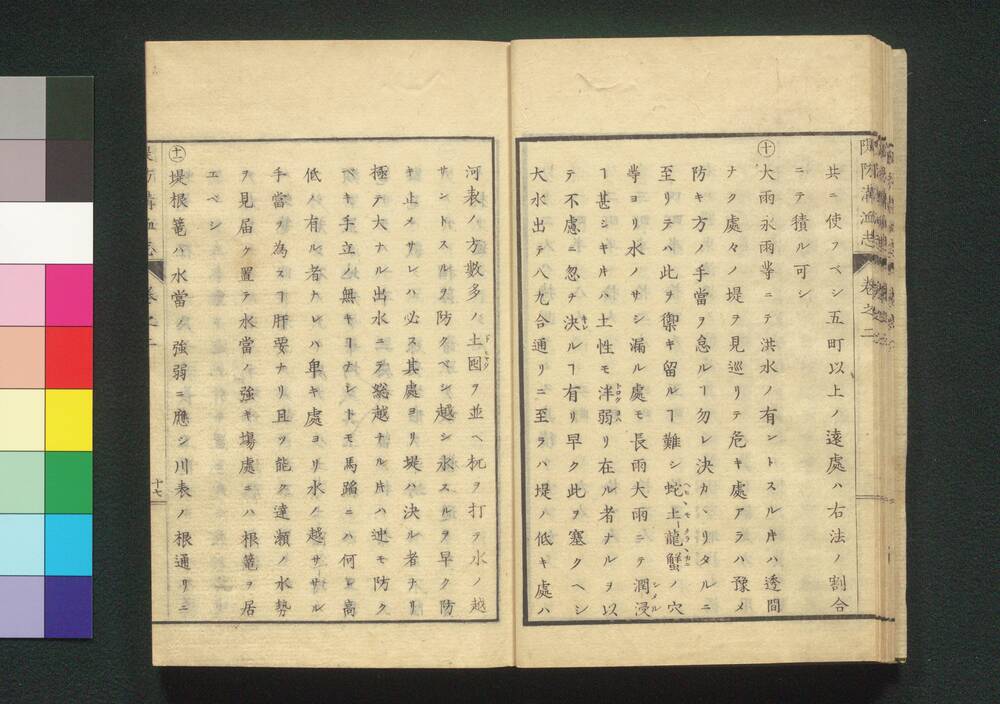 共ニ使フベシ五町以上ノ遠處ハ右法ノ割合
ニテ積ル可シ
㊉大雨永雨等ニテ洪水ノ有ントスル片ハ透間
ナク處々ノ堤ヲ見巡リテ危キ處アラハ豫メ
防キ方ノ手當ヲ怠ルヿ勿レ決カヽリタルニ
至リテハ此ヲ禦キ留ルヿ難シ蛇土龍蟹ノ穴
等ヨリ水ノサシ漏ル處モ長雨大雨ニテ潤浸
ヿ甚シキ片ハ土性モ泮弱リ在ル者ナルヲ以
テ不慮ニ忽チ決ルヿ有リ早ク此ヲ塞クヘシ
大水出テ八九合通リニ至ラハ堤ノ低キ處ハ
河表ノ方數多ノ土囤ヲ並ヘ杭ヲ打テ水ノ越
サントスルヲ防クベシ越シ水スルヲ早ク防
キ止メサレハ必ス其處ヨリ堤ハ決ル者ナリ
極テ大ナル出水ニテ総越ナル片ハ迚モ防ク
ベキ手立ノ無キヿナレトモ馬踏ニハ何レ高
低ノ有ル者ナレハ卑キ處ヨリ水ノ越サヽル
手當ヲ為スヿ肝要ナリ且ツ能ク達瀬ノ水勢
ヲ見届ク置テ水當ノ強キ塲處ニハ根篭ヲ居
エベシ
㊉一堤根篭ハ水當ノ強弱ニ應シ川表ノ根通リニ
卷之二
十七